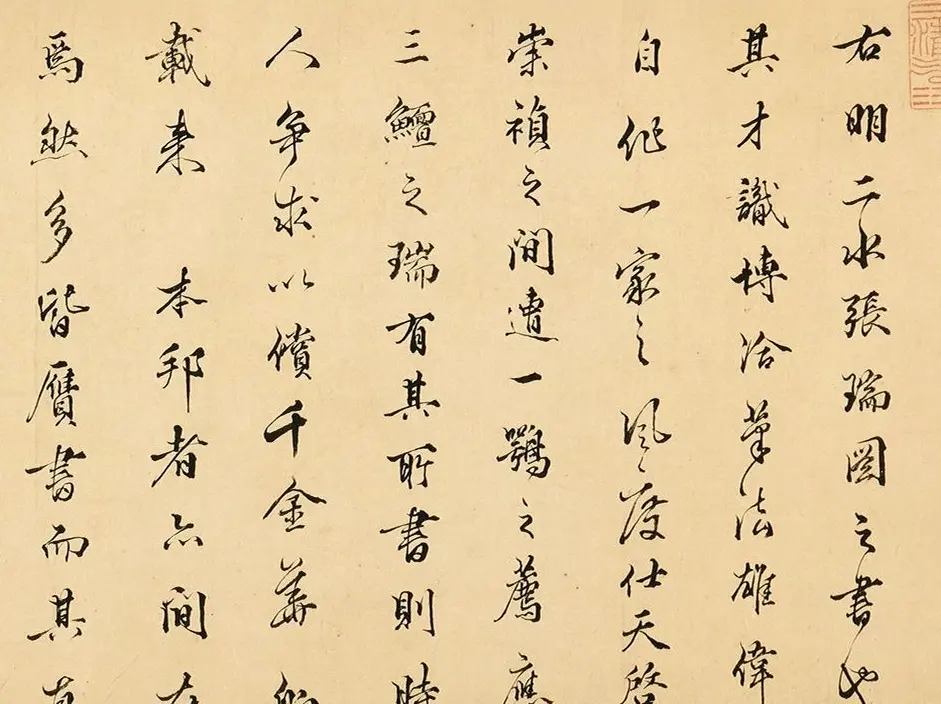 右明二水張瑞圖之書也
其才識博洽筆法雄偉
自作一家之風度仕天啓
崇禎之間遭一鶚之薦應
三鱣之瑞有其所書則時
人爭求以償千金華船
載来 本邦者亦間有
焉然多皆贋書而其真